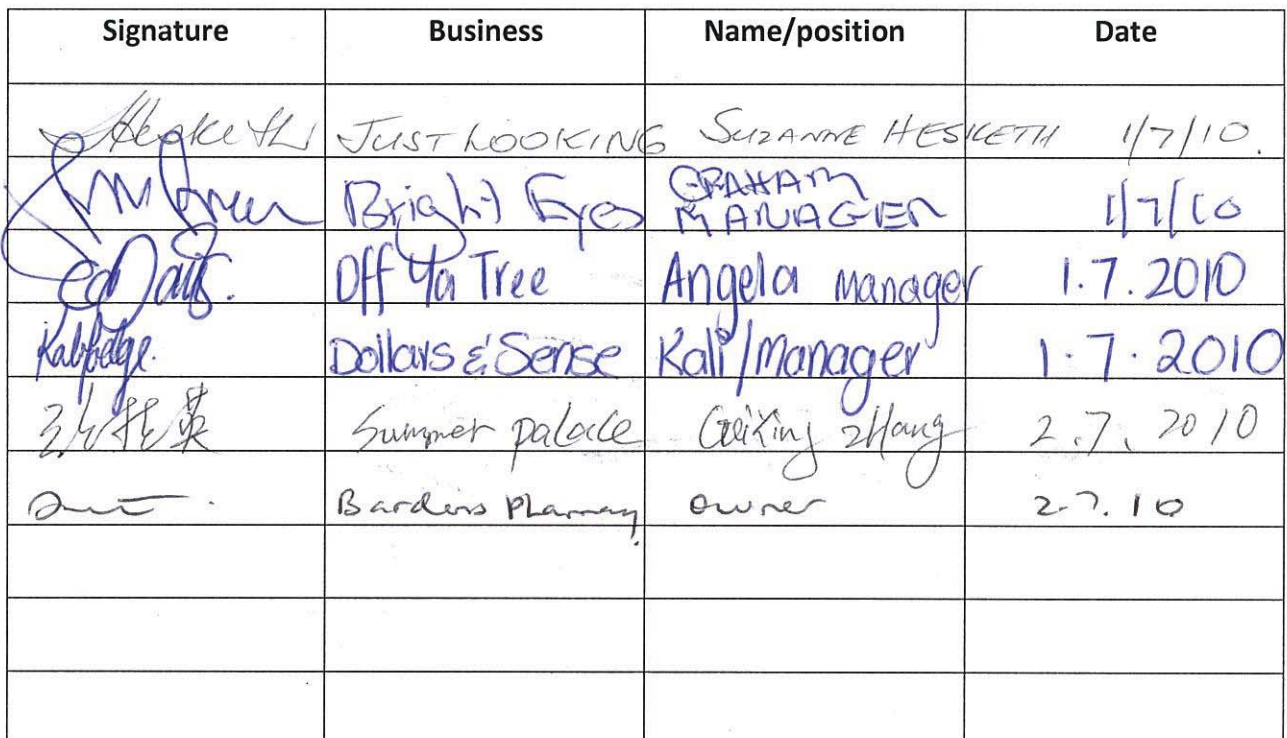 Signature Business Name/position Date
Hesketh JUST LOOKING SUZANNE HESKETH 1/7/10.
Bright Eyes GRAHAM MANAGER 1/7/10
Off Ya Tree Angela manager 1.7.2010
Dollars & Sense Kali/Manager 1.7.2010
英 Summer palace zhang 2.7.2010
Bardens Pharmacy owner 2.7.10